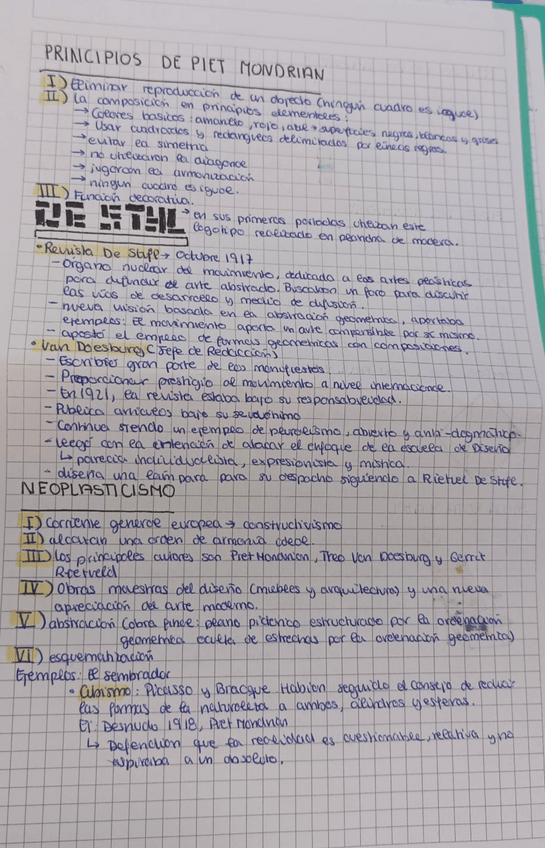 PRINCIPIOS DE PIET MONDRIAN
I) Eliminar reproducción de un objecto (ningún cuadro es igual)
II) La composición en principios elementales:
→ Colores basicos: amarillo, rojo, azul → superficies negras, blancas y grises
→ Usar cuadrados y rectangulos delimitados por lineas negras.
→ evitar la simetria
→ no utilizaron la diagonal
→ jugaron la armonización
→ ningun cuadro es igual.
III) Función decorativa.
DE STYL → en sus primeras portadas utilizan este
logotipo realizado en plancha de madera.
• Revista De Stijl → Octubre 1917
- Organo nuclear del movimiento, dedicada a las artes plasticas
para difundir el arte abstracto. Buscaban un foro para discutir
las vias de desarrollo y medio de difusión.
- nueva visión basada en la abstracción geometrica, aportaba
ejemplos: El movimiento aporta un arte compartible por si mismo.
- apostó el empleo de formas geometricas con composiciones.
• Van Doesburg (Jefe de Redacción)
- Escribio gran parte de los manifiestos
- Proporcionar prestigio al movimiento a nivel internacional.
- En 1921, la revista estaba bajo su responsabilidad.
- Publica articulos bajo su seudonimo
- Continua siendo un ejemplo de pluralismo, abierto y anti-dogmatico.
- Llegó con la intención de atacar el enfoque de la escuela de Diseño
↳ parecia individualista, expresionista y mistica.
- diseña una lampara para su despacho siguiendo a Rietvel De Stijl.
NEOPLASTICISMO
I) corriente general europea → constructivismo
II) alcanzan una orden de armonia ideal.
III) los principales autores son Piet Mondrian, Theo Van Doesburg y Gerrit
Rietveld
IV) Obras maestras del diseño (muebles y arquitectura) y una nueva
apreciación del arte moderno.
V) abstracción (obra final: plano pictorico estructurado por la ordenación
geometrica oculta de estrechas por la ordenación geometrica)
VI) esquematización
Ejemplos: El sembrador
• Cubismo: Picasso y Bracque habian seguido el consejo de reducir
las formas de la naturaleza a ambos, cilindros y esferas.
Ej: Desnudo 1918, Piet Mondrian
↳ Defención que la realidad es cuestionable, relativa y no
aspiraba a un absoluto.